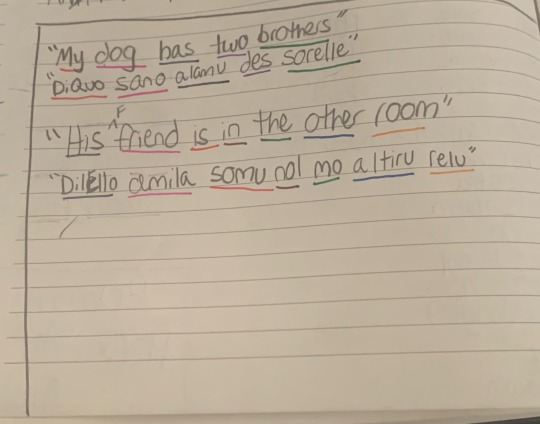 "My dog has two brothers"
"Diquo sano alamu des sorelle"
"His friend is in the other room"
"Dilello amila somu nol mo altiru relu"